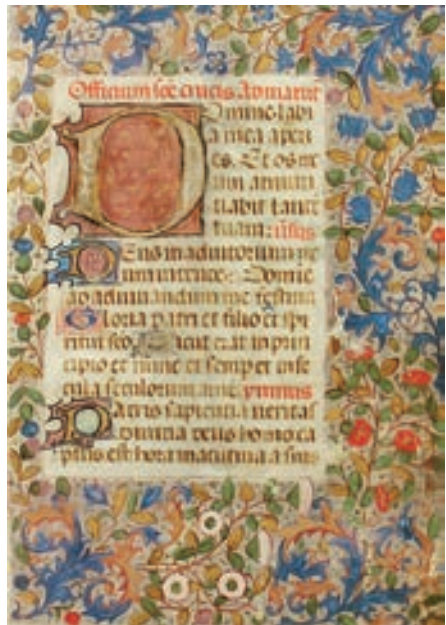 Officium sce crucis Ad matut
Domine labi
a mea aperi
es. Et os me
um annunti
tiabit laude
tuam: v̄sus
Deus in adiutorium me
um intende: Domine
ad adiuuandum me festina
Gloria patri et filio et spi
ritui sco. Sicut erat in prin
cipio et nunc et semper et in se
cula seculorum. ame. ymnus
Patris sapientia ueritas
diuina deus homo ca
ptus est hora matutina a suis